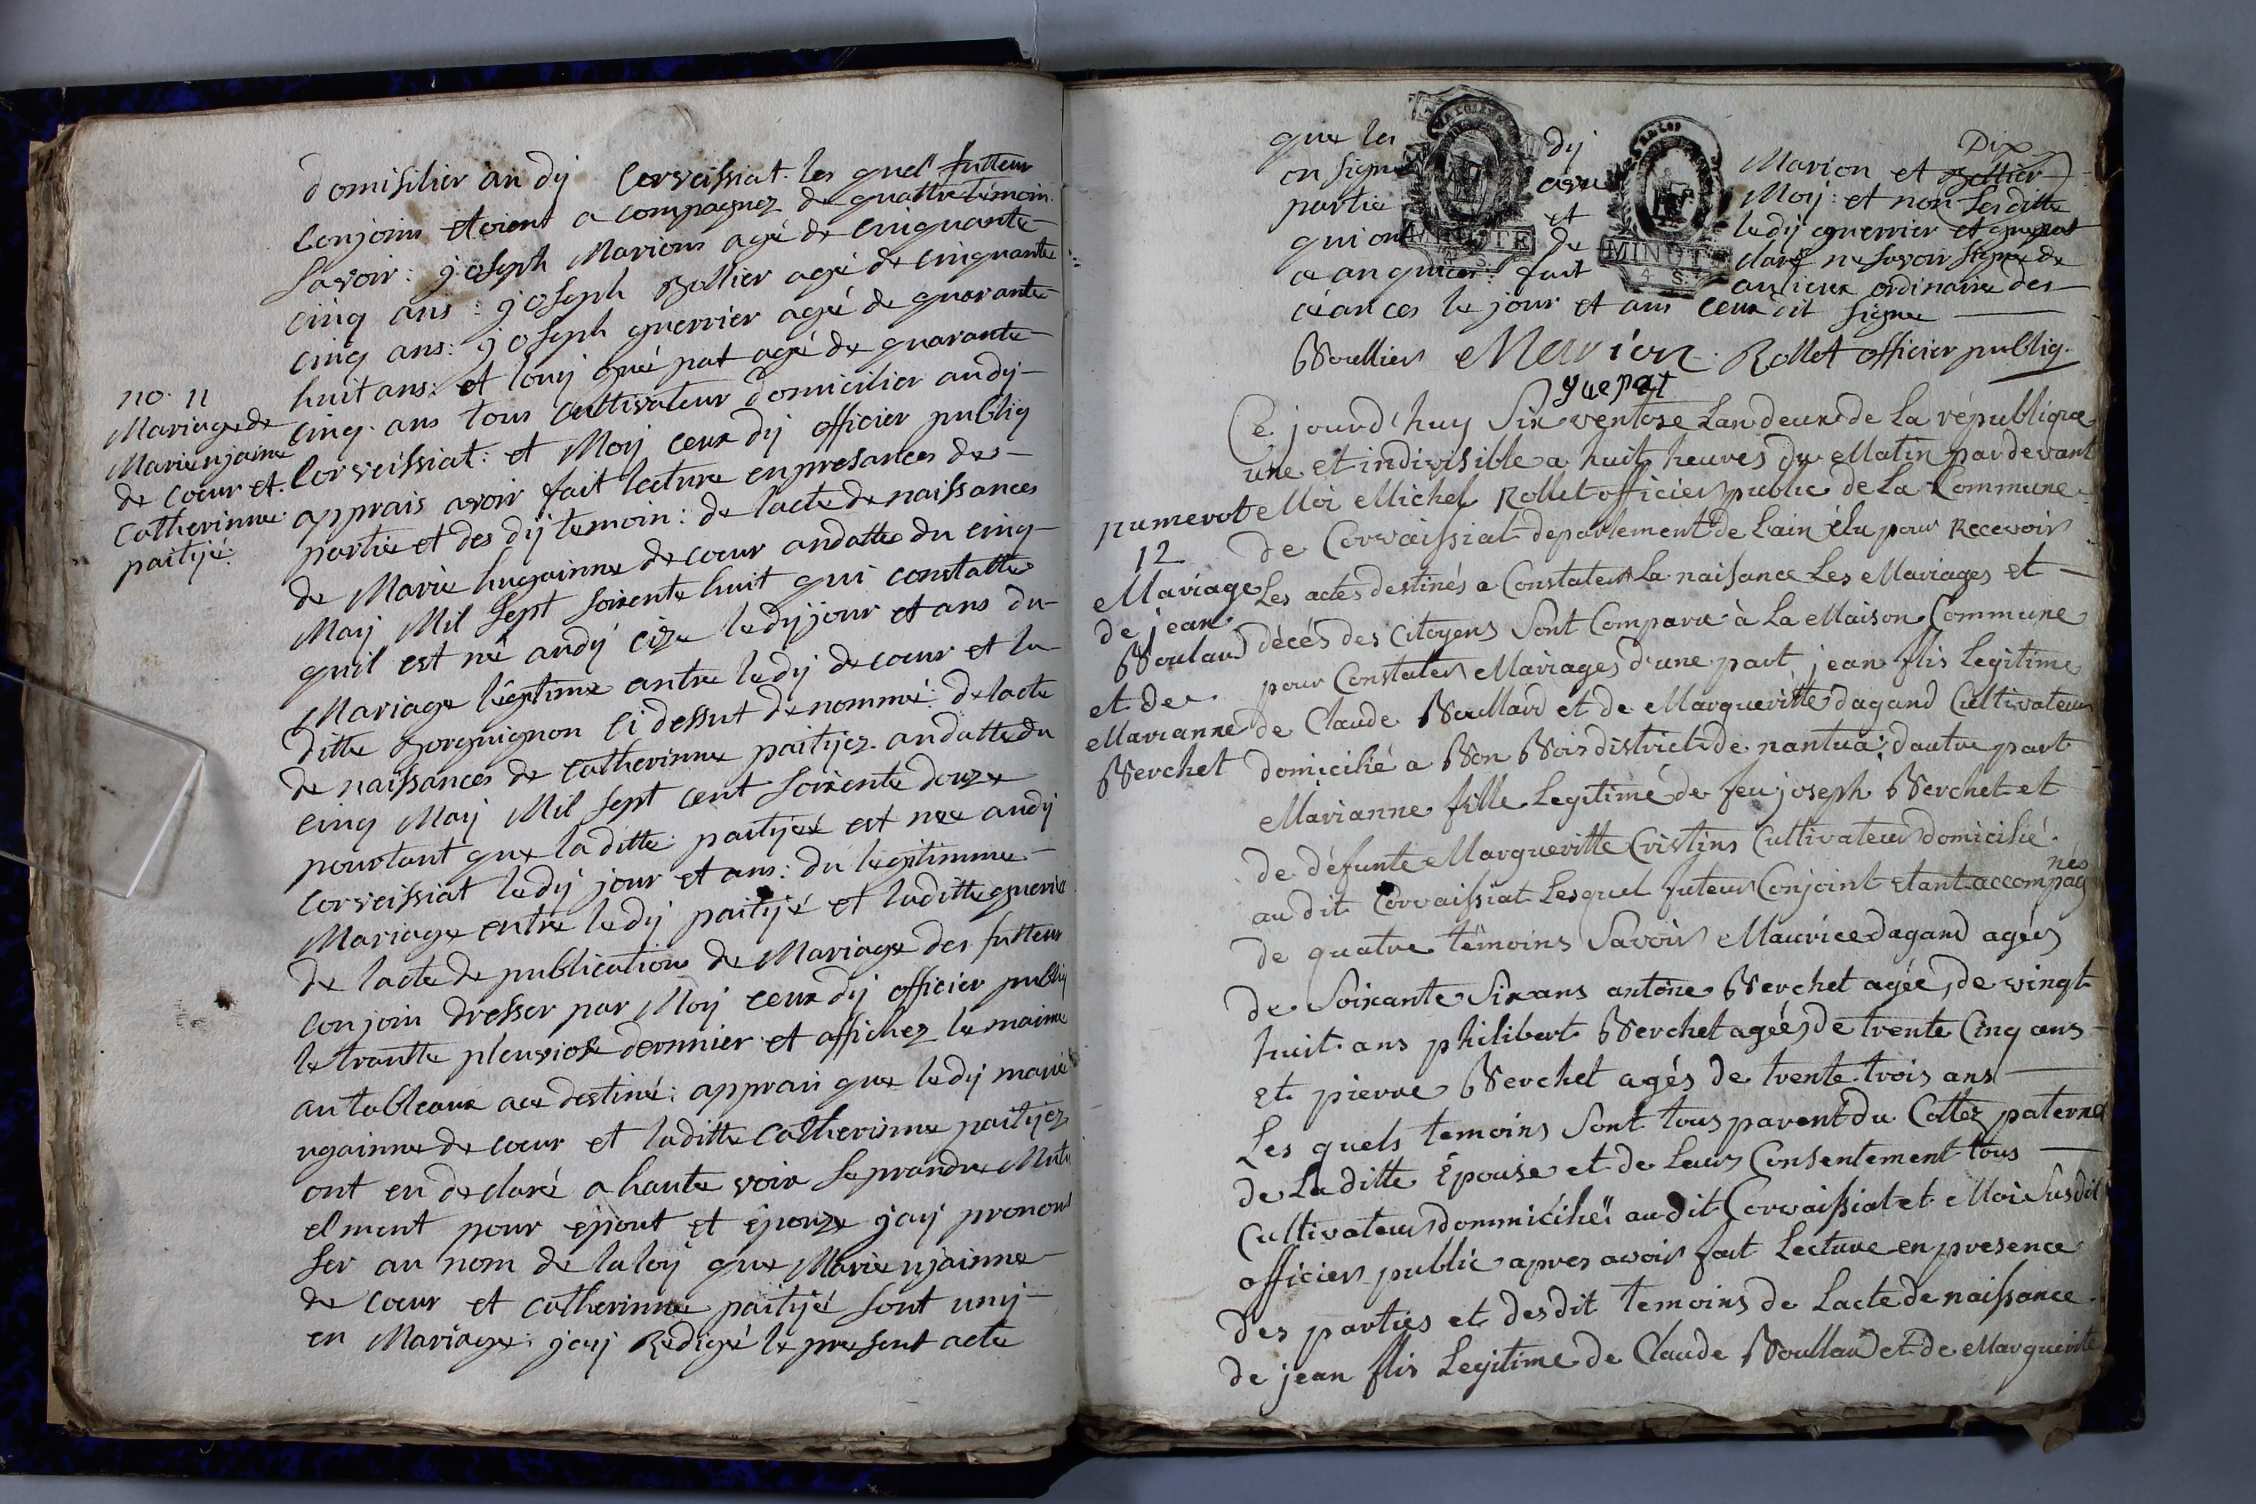 domisilier an dij Corveissiat. les quel futteur
Conjoins etoient a compagnez de quattre témoin.
Savoir : joseph Marions agé de cinquante
cinq ans : joseph Bollier agé de cinquante
cinq ans : joseph guerrier agé de quarante
huit ans : et louij gué pat agé de quarante
cinq. ans tous cultivateur domicilier andij
Corveissiat : et Moij ceux dij officier publiq
apprais avoir fait lecture en presances des
partie et des dij temoin : de lacte de naissances
de Marie hugainne de coeur andatte du cinq
Maij Mil Sept soixente huit qui constatte
quil est né andij cize ledij jour et ans du
Mariage légitime antre ledij decoeur et la
ditte gorguignon ci dessut denommé : de lacte
de naissances de Catherinne paitijez andatte du
cinq Maij Mil Sept cent soixente douze
pourtant que laditte paitijeé est nee andij
Corveissiat ledij jour et ans : du legitimme
Mariage entre ledij paitijé et laditte guerier
de lacte de publication de Mariage des futteur
Conjoin dresser par Moij ceux dij officier publiq
le trantte pleuviose dernnier et affichez la maime
au tableaux ace destiné : apprais que ledij marie
ugainne de coeur et laditte Catherinne paitijez
ont en declaré a haute voix se prandre Mutu
elment pour époux et épouze jaij prononc
ser au nom de la loij que Marie ujainne
de coeur et catherinne paitijé sont unij
en Mariage : jaij Redigé le present acte
no. 11
Mariage de
Marie njainne
de coeur et.
Catherinne
paitijé.
Dix
que les dij Marion et Bollier
on signé avec Moij : et non les ditte
partie et ledij guerrier et guepat
qui ont de claré ne savoir signer de
ce anquis : fait au lieux ordinaire des
céances le jour et ans ceux dit signe
Boullier Marion. Rollet officier publiq.
guepat
MINUTE
4 S.
MINUTE
4 S.
Ce jourd'huy Six ventose Lan deux de La république
une et indivisible a huit heures du Matin pardevant
Moi Michel Rollet officier public de La Commune
de Corvaissiat departement de Lain élu pour Recevoir
Les actes destinés a Constater La naisance Les Mariages et
décés des Citoyens Sont Comparu à La Maison Commune
pour Constater Mariages d'une part jean flis Legitime
de Claude Boullard et de Margueritte dagand Cultivateur
domicilié a Bon Bois district de nantua ; dautre part
Marianne fille Legitime de feu joseph Berchet et
de défunte Margueritte Cristins Cultivateur domicilié
au dit Corvaissiat Lesquel futeur Conjoint etant accompag
nés
de quatre témoins Savoir Maurice dagand agées
de Soixante Six ans antoine Berchet agée, de vingt
huit ans philibert Berchet agées de trente Cinq ans
et pierre Berchet agés de trente trois ans
Les quels temoins Sont tous parent du Cottez paternel
de La ditte épouse et de Leur Consentement tous
Cultivateur dommicilié audit Corvaissiat et Moi Susdit
officier public apres avoir fait Lecture en presence
des parties et desdit temoins de Lacte de naissance
de jean flis Legitime de Claude Boullard et de Margueritte
numerot
12
Mariage
de jean
Boulard
et de
Marianne
Berchet